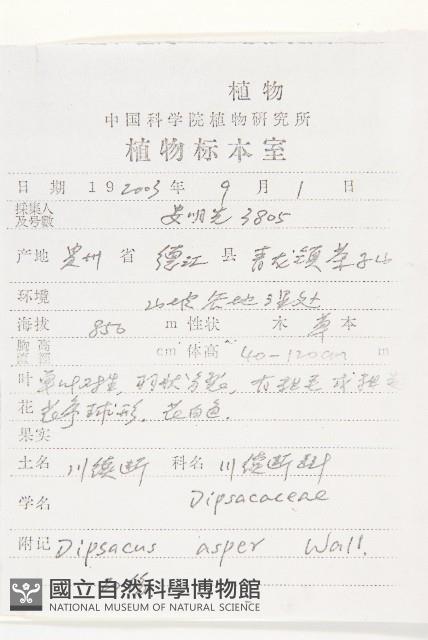 植物
中国科学院植物研究所
植物标本室
日期 19 2003年 9月 1日
採集人
及号数 安明先 3805
产地 贵州省 德江县 青龙镇
环境 山坡 谷地 湿处
海拔 850 m 性状 木 草 本
胸高 cm 体高 40-120cm m
叶 单叶对生, 羽状分裂,
花 头状球形, 花白色.
果实
土名 川续断 科名 川续断科
学名 Dipsacaceae
附记 Dipsacus asper Wall.
國立自然科學博物館
NATIONAL MUSEUM OF NATURAL SCIENCE